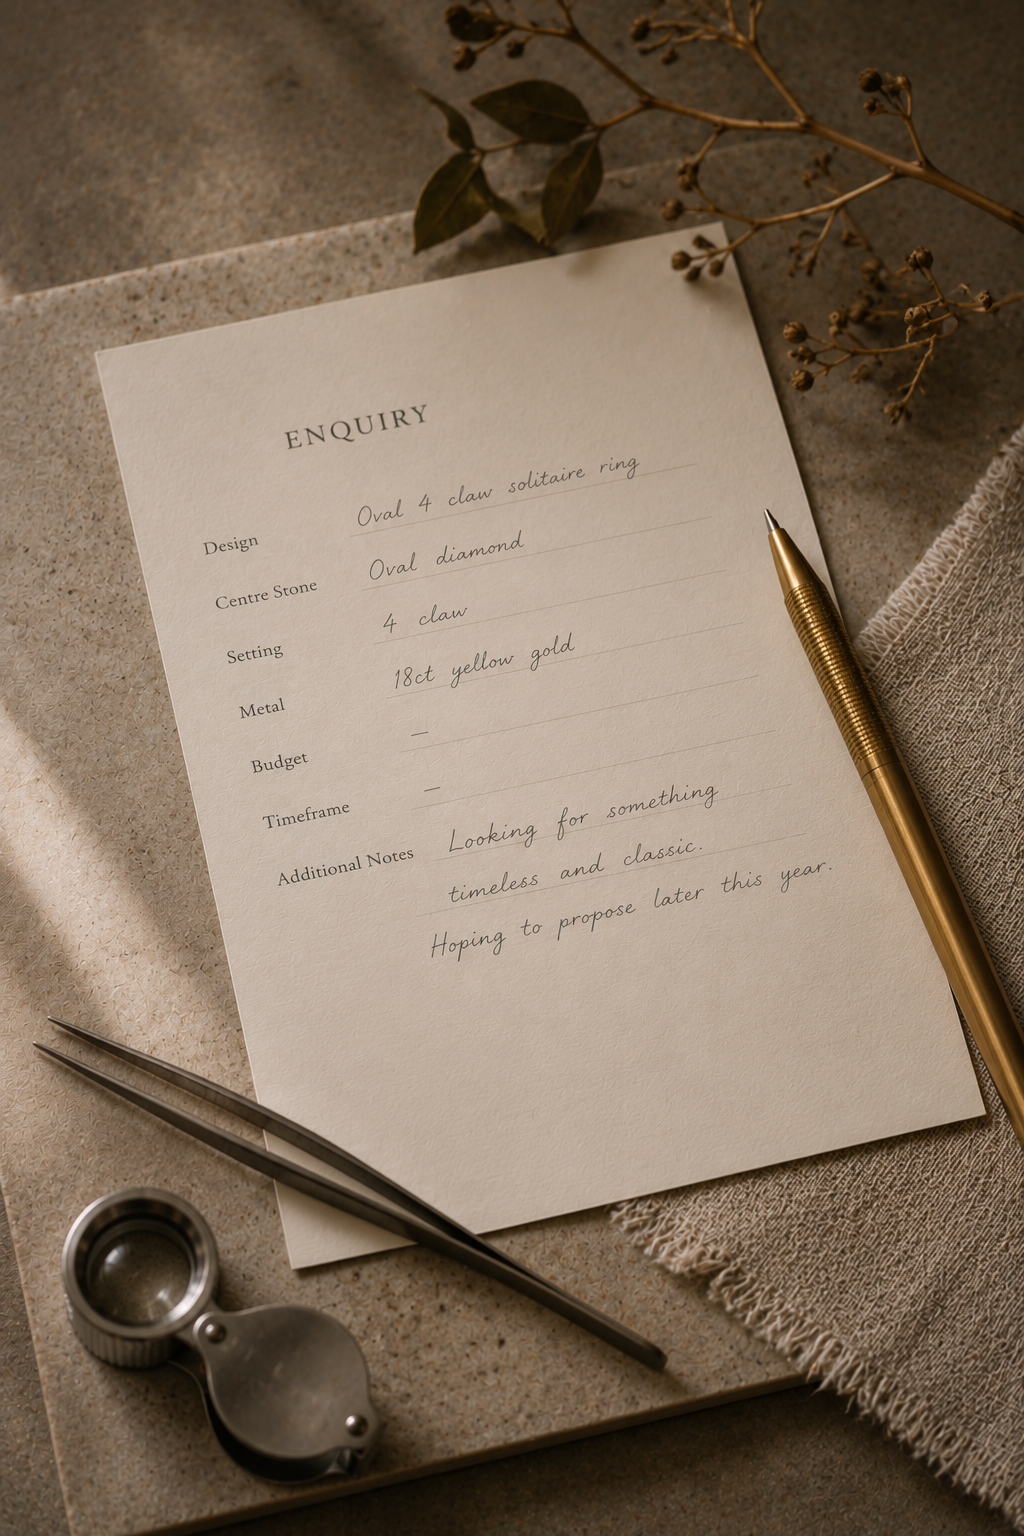 ENQUIRY
Design Oval 4 claw solitaire ring
Centre Stone Oval diamond
Setting 4 claw
Metal 18ct yellow gold
Budget —
Timeframe —
Additional Notes Looking for something
timeless and classic.
Hoping to propose later this year.